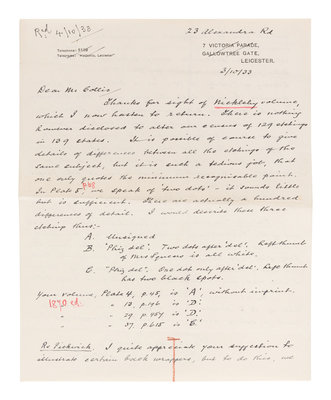 Red 4/10/33
23 Alexandra Rd
7 VICTORIA PARADE,
GALLOWTREE GATE,
LEICESTER.
3/10/33
Dear Mr Collis,
Thanks for sight of Nickleby volume,
which I now hasten to return. There is nothing
however disclosed to alter our census of 129 etchings
in 139 states. It is possible of course to give
details of difference between all the etchings of the
same subject, but it is such a tedious job, that
one only quotes the minimum recognisable point.
p 68
In Plate 5, we speak of 'two dots' - it sounds little
but is sufficient. There are actually a hundred
differences of detail. I would describe these three
etchings thus:-
A. Unsigned
B. "Phiz del". Two dots after 'del'. Right thumb
of Mrs Squeers is all white.
C. "Phiz del". One dot only after 'del'. Right thumb
has two black spots.
Your volume, Plate 4, p.45, is 'A', without imprint.
1870 ed.
" 13, p.196 is 'D'.
" 29, p.454 is 'D'.
" 37, p.615 is 'E'.
Re Pickwick. I quite appreciate your suggestion to
illustrate certain back wrappers, but to do this, we